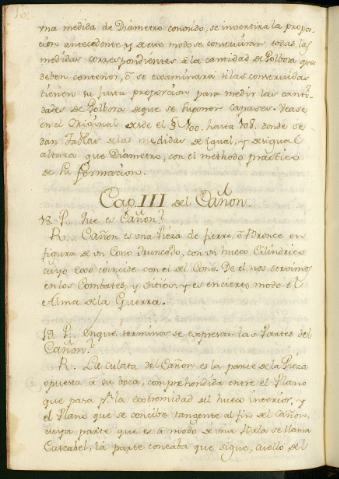 una medida de Diametro conocido, se invertira la propor-
cion antecedente, y de este modo se construiran todas las
medidas correspondientes à la cantidad de Polbora que
deben contener, ô se examinarà si las construidas
tienen su justa proporcion para medir las canti-
dades de Polbora de que se suponen capaces. Vease
en el Original desde el § 100, hasta 108, donde se
dan Tablas de las medidas de igual, y desigual
altura que Diametro, con el methodo practico
de su formacion.
Cap. III del Cañon.
18. P. Que es Cañon?
R. Cañon es una Pieza de fierro, ô Bronce en
figura de un Cono Truncado, con un hueco Cilindrico
cuyo exe coincide con el del Cono. De el nos servimos
en los Combates, y Sitios, y es en cierto modo el
Alma de la Guerra.
19. P. En que terminos se expresan las Partes del
Cañon?
R. La culata del Cañon es la parte de la Pieza
opuesta à su boca, comprehendida entre el Plano
que pasa pr. la extremidad del hueco interior, y
el Plano que se concibe tangente al fin del Cañon,
cuya parte que es à modo de una se llama
Cascabel, la parte concaba que sigue, cuello del